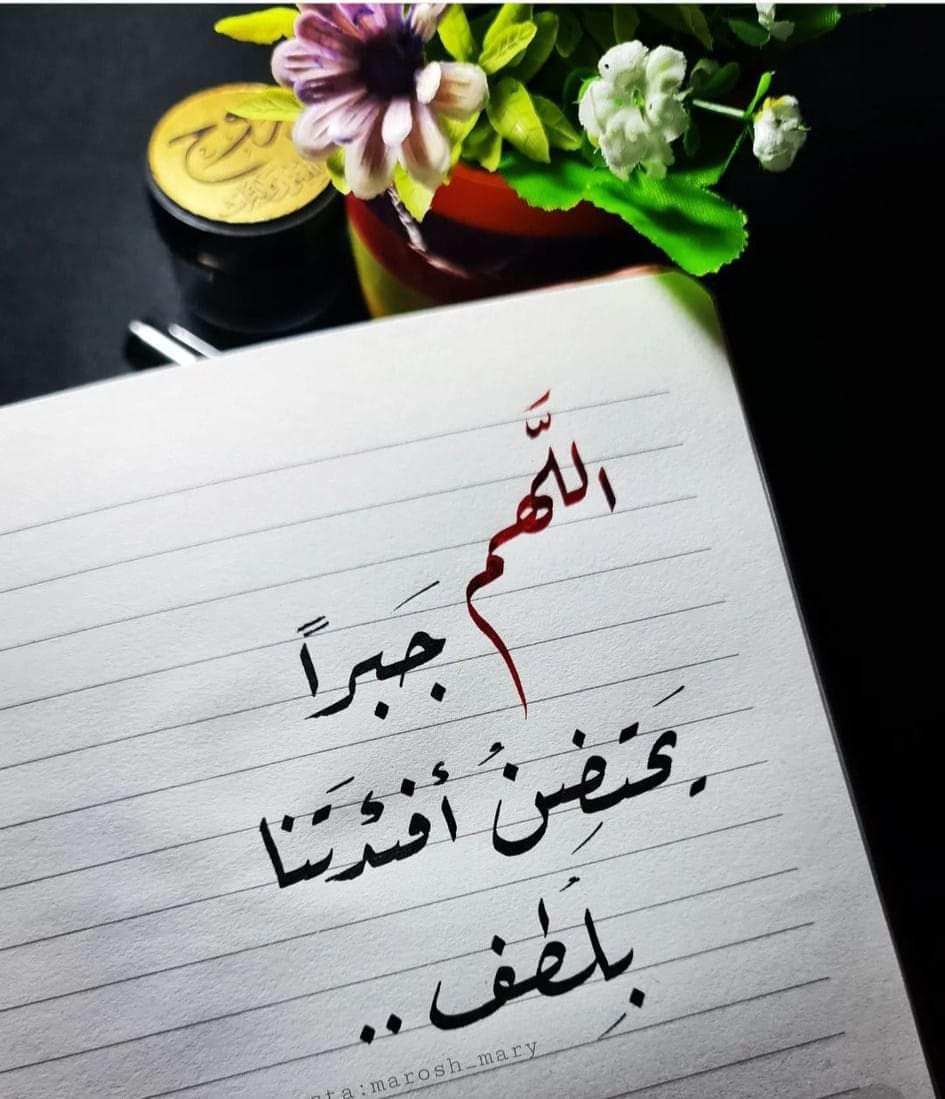 اللَّهم
جَبراً
يَحتضِنُ أفئدتَنا
بِلُطف..
sta:marosh_mary